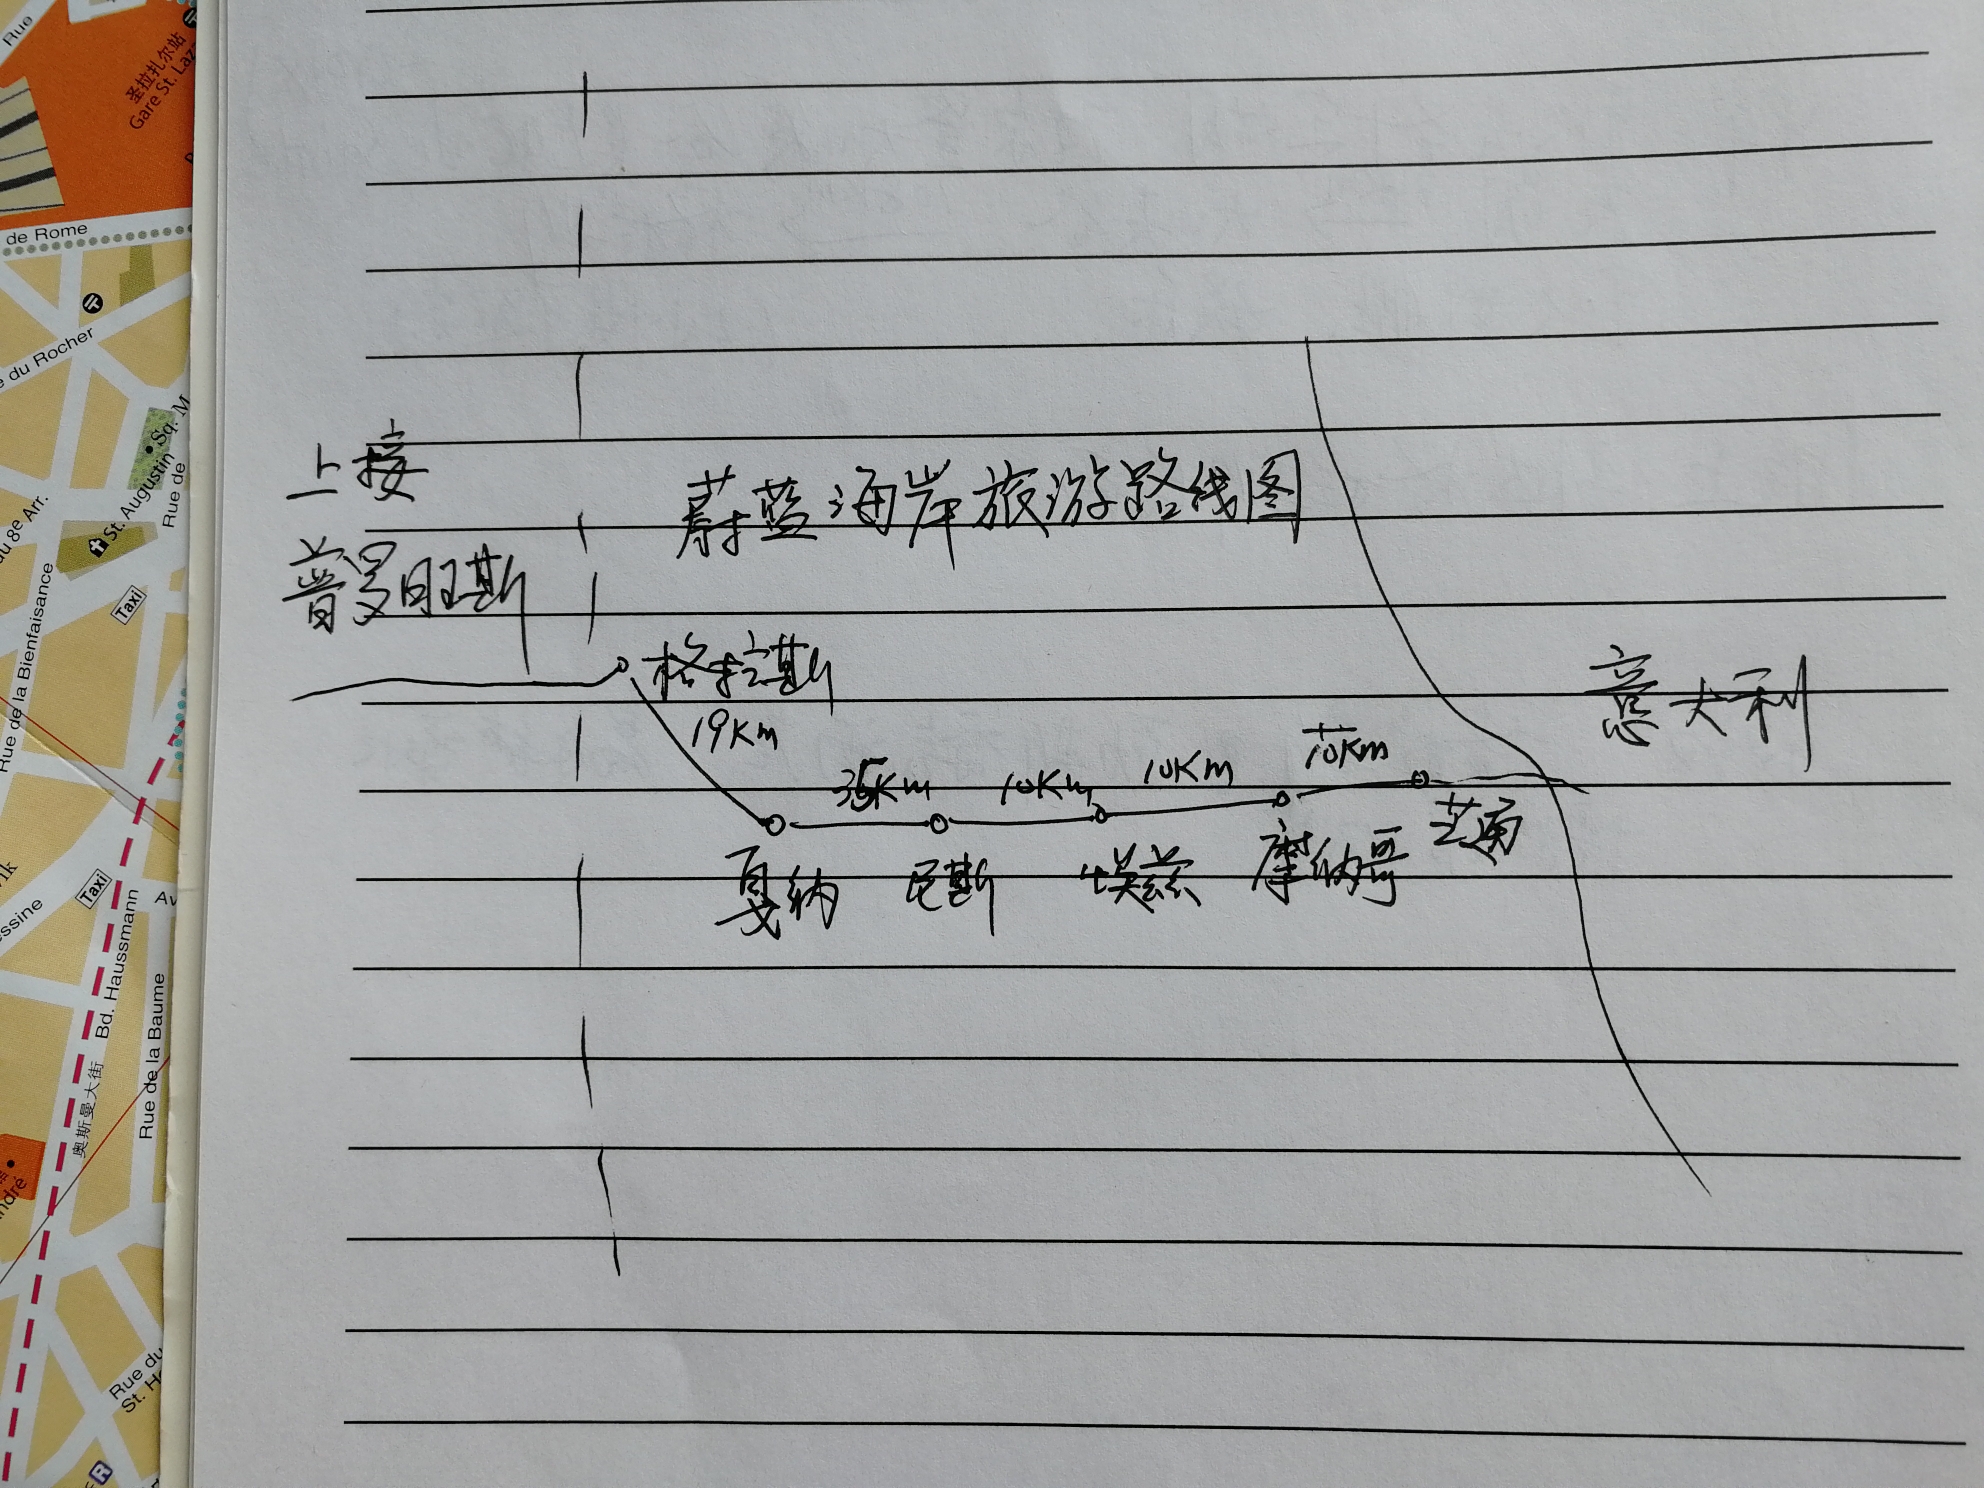 Rue
圣拉扎尔站
Gare St. Laz
de Rome
e du Rocher
Sq. M
St. Augustin
Rue de
du 8e Arr.
Taxi
Rue de la Bienfaisance
Taxi
Av
essine
Bd. Haussmann
奥斯曼大街
Rue de la Baume
ndré
Rue du
St. H
R
上接
普罗旺斯
蔚蓝海岸旅游路线图
格拉斯
19Km
35Km
10Km
10Km
10Km
戛纳
尼斯
埃兹
摩纳哥
芒通
意大利